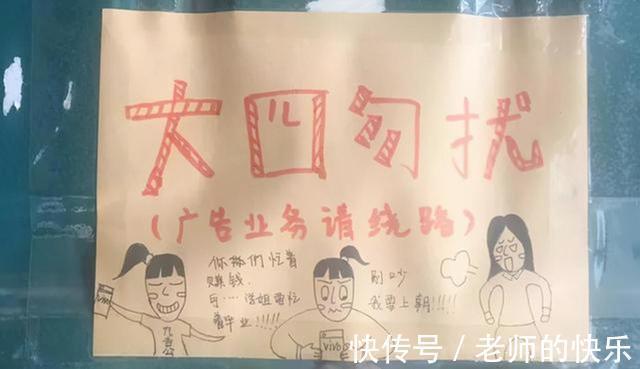 大四勿扰
(广告业务请绕路)
你称们忙着
赚钱
可····洁姐要忙
着毕业!!!!!
别吵
我要上朝!!!!
vivo
快传号 / 老师的快乐